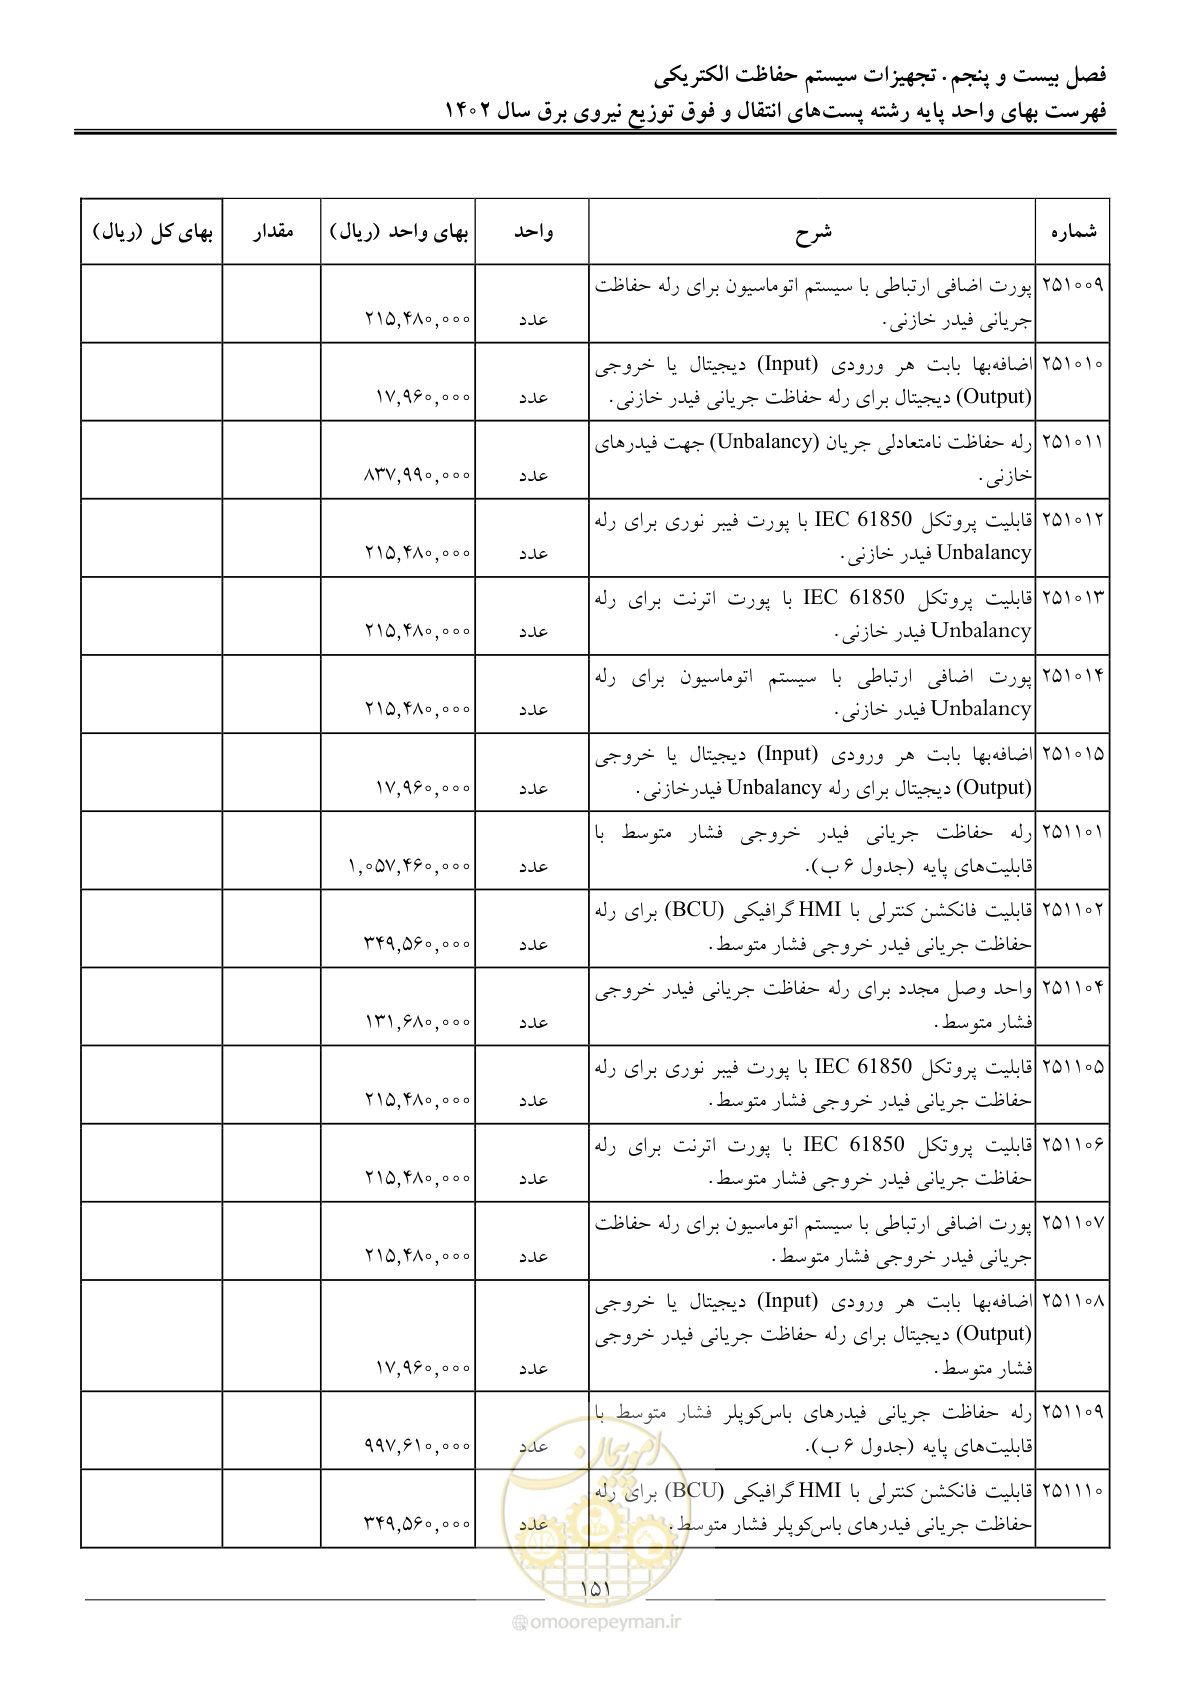 فصل بیست و پنجم. تجهیزات سیستم حفاظت الکتریکی
فهرست بهای واحد پایه رشته پست‌های انتقال و فوق توزیع نیروی برق سال ۱۴۰۲
شماره شرح واحد بهای واحد (ریال) مقدار بهای کل (ریال)
۲۵۱۰۰۹ پورت اضافی ارتباطی با سیستم اتوماسیون برای رله حفاظت
جریانی فیدر خازنی. عدد ۲۱۵,۴۸۰,۰۰۰
۲۵۱۰۱۰ اضافه‌بها بابت هر ورودی (Input) دیجیتال یا خروجی
(Output) دیجیتال برای رله حفاظت جریانی فیدر خازنی. عدد ۱۷,۹۶۰,۰۰۰
۲۵۱۰۱۱ رله حفاظت نامتعادلی جریان (Unbalancy) جهت فیدرهای
خازنی. عدد ۸۳۷,۹۹۰,۰۰۰
۲۵۱۰۱۲ قابلیت پروتکل IEC 61850 با پورت فیبر نوری برای رله
Unbalancy فیدر خازنی. عدد ۲۱۵,۴۸۰,۰۰۰
۲۵۱۰۱۳ قابلیت پروتکل IEC 61850 با پورت اترنت برای رله
Unbalancy فیدر خازنی. عدد ۲۱۵,۴۸۰,۰۰۰
۲۵۱۰۱۴ پورت اضافی ارتباطی با سیستم اتوماسیون برای رله
Unbalancy فیدر خازنی. عدد ۲۱۵,۴۸۰,۰۰۰
۲۵۱۰۱۵ اضافه‌بها بابت هر ورودی (Input) دیجیتال یا خروجی
(Output) دیجیتال برای رله Unbalancy فیدرخازنی. عدد ۱۷,۹۶۰,۰۰۰
۲۵۱۱۰۱ رله حفاظت جریانی فیدر خروجی فشار متوسط با
قابلیت‌های پایه (جدول ۶ ب). عدد ۱,۰۵۷,۴۶۰,۰۰۰
۲۵۱۱۰۲ قابلیت فانکشن کنترلی با HMI گرافیکی (BCU) برای رله
حفاظت جریانی فیدر خروجی فشار متوسط. عدد ۳۴۹,۵۶۰,۰۰۰
۲۵۱۱۰۴ واحد وصل مجدد برای رله حفاظت جریانی فیدر خروجی
فشار متوسط. عدد ۱۳۱,۶۸۰,۰۰۰
۲۵۱۱۰۵ قابلیت پروتکل IEC 61850 با پورت فیبر نوری برای رله
حفاظت جریانی فیدر خروجی فشار متوسط. عدد ۲۱۵,۴۸۰,۰۰۰
۲۵۱۱۰۶ قابلیت پروتکل IEC 61850 با پورت اترنت برای رله
حفاظت جریانی فیدر خروجی فشار متوسط. عدد ۲۱۵,۴۸۰,۰۰۰
۲۵۱۱۰۷ پورت اضافی ارتباطی با سیستم اتوماسیون برای رله حفاظت
جریانی فیدر خروجی فشار متوسط. عدد ۲۱۵,۴۸۰,۰۰۰
۲۵۱۱۰۸ اضافه‌بها بابت هر ورودی (Input) دیجیتال یا خروجی
(Output) دیجیتال برای رله حفاظت جریانی فیدر خروجی
فشار متوسط. عدد ۱۷,۹۶۰,۰۰۰
۲۵۱۱۰۹ رله حفاظت جریانی فیدرهای باس‌کوپلر فشار متوسط با
قابلیت‌های پایه (جدول ۶ ب). عدد ۹۹۷,۶۱۰,۰۰۰
۲۵۱۱۱۰ قابلیت فانکشن کنترلی با HMI گرافیکی (BCU) برای رله
حفاظت جریانی فیدرهای باس‌کوپلر فشار متوسط. عدد ۳۴۹,۵۶۰,۰۰۰
امور پیمان
۱۵۱
omoorepeyman.ir